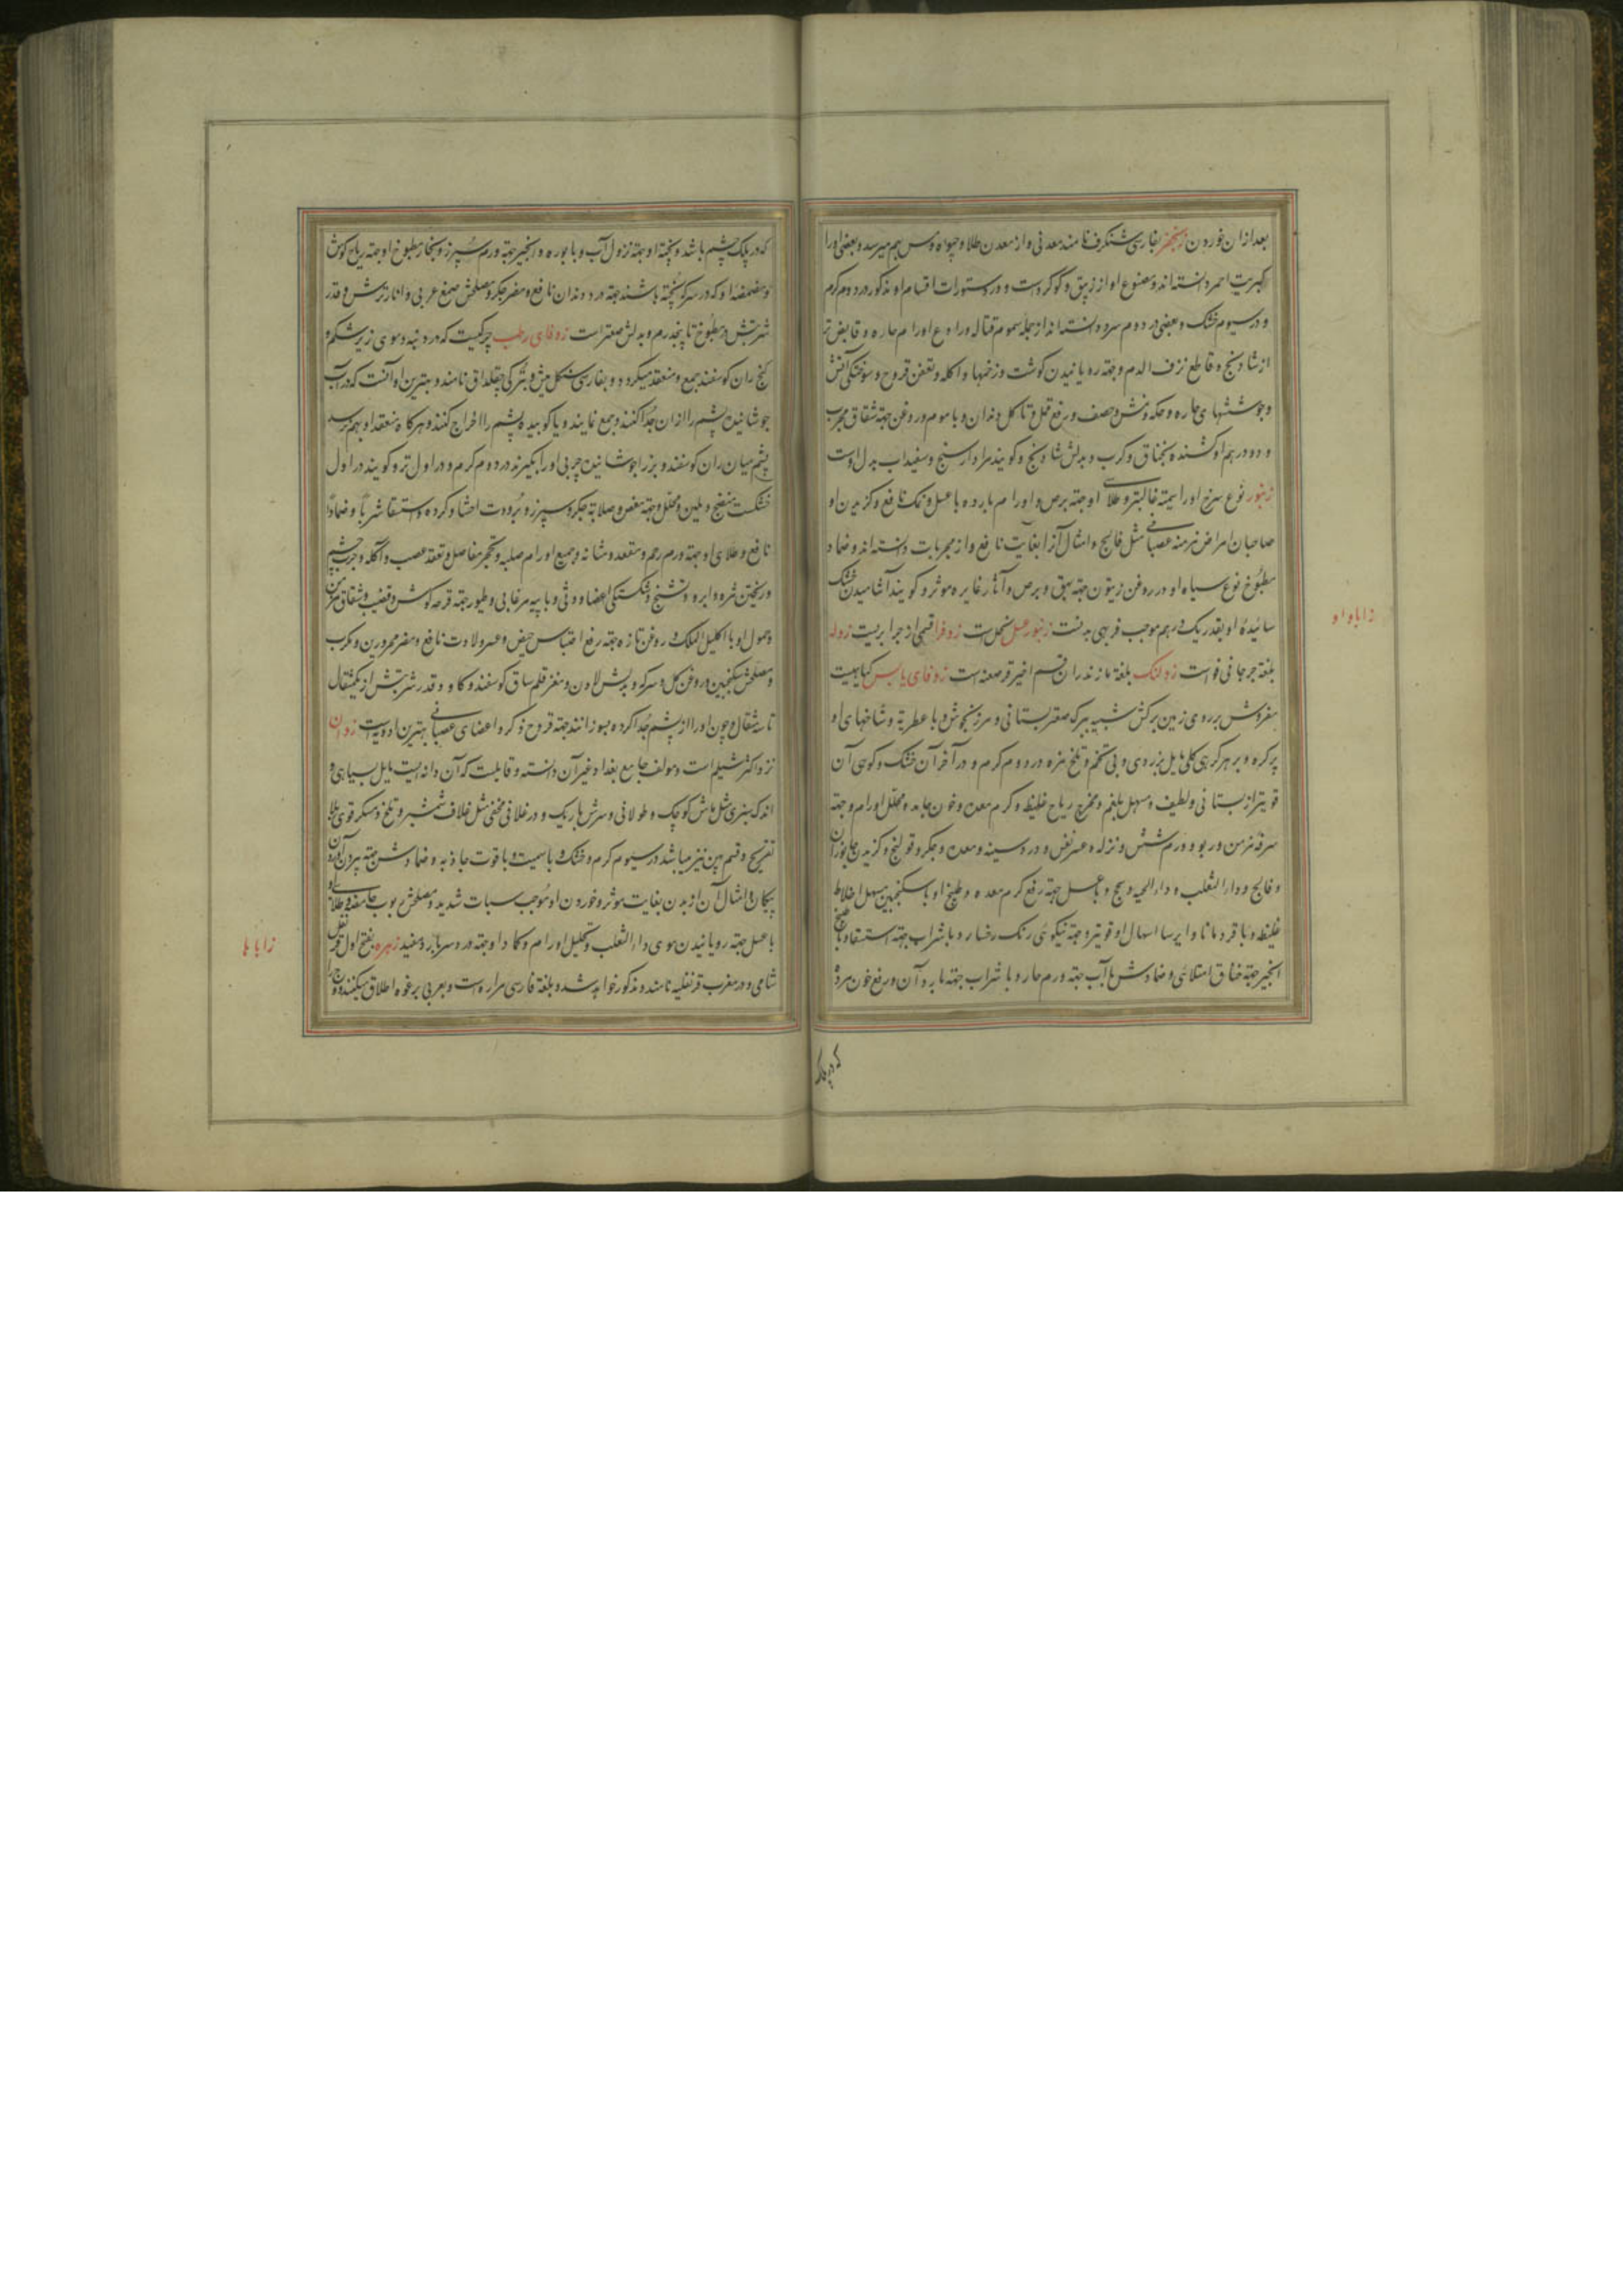 بعد ازان خوردن زنجفر بفارسی شنکرف نامند معدنی و از معدن طلا و جیوه و مس بهم میرسد و بعضی او را
کبریت احمر دانسته‌اند و مصنوع او از زیبق و کوکردست و در دستورات اقسام او مذکور در دوم کرم
و در سیوم خشک و بعضی در دوم سرد دانسته‌اند از جمله سموم قتاله و رادع اورام حاره و قابض‌تر
از شادنج و قاطع نزف الدم و جهته رویانیدن کوشت و زخمها و اکله و تعفن قروح و سوختکی آتش
و جوششهای حاره و حکه و نمش و حصف و رفع قمل و تاکل دندان و با موم و روغن جهته شقاق مجرب
و دو درهم او کشنده بخناق و کرب و بدلش شادنج و کویند مرادارسنج و سفیداب بدل اوست
زنبور نوع سرخ او را سمیته غالبتر و طلای او جهته برص و اورام بارده با عسل و نمک نافع و کزیدن او
صاحبان امراض مزمنه عصبانی مثل فالج و امثال آنرا بغایت نافع و از مجربات دانسته‌اند و ضماد
مطبوخ نوع سیاه او در روغن زیتون جهته بهق و برص و آثار غایره موثر و کویند آشامیدن خشک
سائیدهٔ او بقدر یک درهم موجب فربهی بدنست زنبور عسل نحل است زوفرا قسمی از جزا بریست زوله
زاباواو
بلغة جرجانی فو است زولنک بلغة مازندران قسم اخیر قرصعنه است زوفای یابس کیاهیست
مفروش بر روی زمین برکش شبیه ببرک صعتر بستانی و مرزنجوش و با عطریة و شاخهای او
پر کره و بر هر کرهی کلی مایل بزردی و بی تخم و تلخ مزه در دوم کرم و در آخر آن خشک و کوهی آن
قویتر از بستانی و لطیف و مسهل بلغم و مخرج ریاح غلیظ و کرم معده و خون جامد و محلل اورام و جهته
سرفه مزمن و ربو و ورم شش و نزله و عسر نفس و درد سینه و معده و جکر و قولنج و کزیدن جانوران
و فالج و داء الثعلب و داء الحیه و سحج و با عسل جهته رفع کرم معده و طبیخ او با سکنجبین مسهل اخلاط
غلیظ و با قردمانا و ایرسا اسهال او قویتر و جهته نیکوئی رنک رخسار و با شراب جهته استسقا و با طبیخ
انجیر جهته خناق امتلائی و ضمادش با آب جهته ورم حار و با شراب جهته بارد آن و رفع خون مرده
که در پلک
که در پلک چشم باشد و پختهٔ او جهته نزول آب و با بوره و انجیر جهته ورم سپرز و بخار مطبوخ او جهته ریاح کوش
و مضمضهٔ او که در سرکه پخته باشند جهته درد دندان نافع و مضر جکر و مصلحش صمغ عربی و انار ترش و قدر
شربتش در مطبوخ تا پنجدرم و بدلش صعتر است زوفای رطب چرکیست که در دنبه و موی زیر شکم و
کنج ران کوسفند جمع و منعقد میکردد و بفارسی سنکل میش و بترکی چقلداق نامند و بهترین او آنست که در آب
جوشانیده پشم را ازان جدا کنند و جمع نمایند و یا کوبیده پشم را اخراج کنند و هرکاه منعقد او بهم نرسد
پشم میان ران کوسفند و بز را جوشانیده چربی او را بکیرند در دوم کرم و در اول تر و کویند در اول
خشکست منضج و ملین و محلل و جهته مغص و صلابة جکر و سپرز و برودت احشا و کرده و استسقا شرباً و ضماداً
نافع و طلای او جهته ورم رحم و مقعد و مثانه و جمیع اورام صلبه و تحجر مفاصل و تعقد عصب و اکله و جرب چشم
و ریختن مژه و ابرو و تشنج و شکستکی اعضا و وثی و با پیه مرغابی و طیور جهته قرحه کوش و قضیب و شقاق مزمن
و حمول او با اکلیل الملک و روغن تازه جهته رفع احتباس حیض و عسر ولادت نافع و مضر محرورین و مکرب
و مصلحش سکنجبین و روغن کل و سرکه و بدلش لادن و مغز قلم ساق کوسفند و کاو و قدر شربتش از یکمثقال
تا سه مثقال و چون او را از پشم جدا کرده بسوزانند جهته قروح ذکر و اعضای عصبانی بهترین ادویه است زوان
نزد اکثر شیلم است و مولف جامع بغداد غیر آن دانسته و قابلست که آن دانه ایست مایل بسیاهی و
اندک سبزی مثل ماش کوچک و طولانی و سرش باریک و در غلافی مخفی مثل غلاف شمشیر و تلخ و مسکر قوی بلا
تفریح و قسم پهن نیز میباشد در سیوم کرم و خشک و با سمیت و با قوت جاذبه و ضمادش جهته بیرون آوردن
پیکان و امثال آن از بدن بغایت موثر و خوردن او موجب سبات شدید و مصلحش بوب جامضه و طلای او
با عسل جهته رویانیدن موی داء الثعلب و تحلیل اورام و کماد او جهته درد سر بارد مفید زهره بفتح اول قرنفل
زاباها
شامی و در مغرب قرنفلیه نامند و مذکور خواهد شد و بلغة فارسی مراره است و بعربی برغوه اطلاق میکنند و